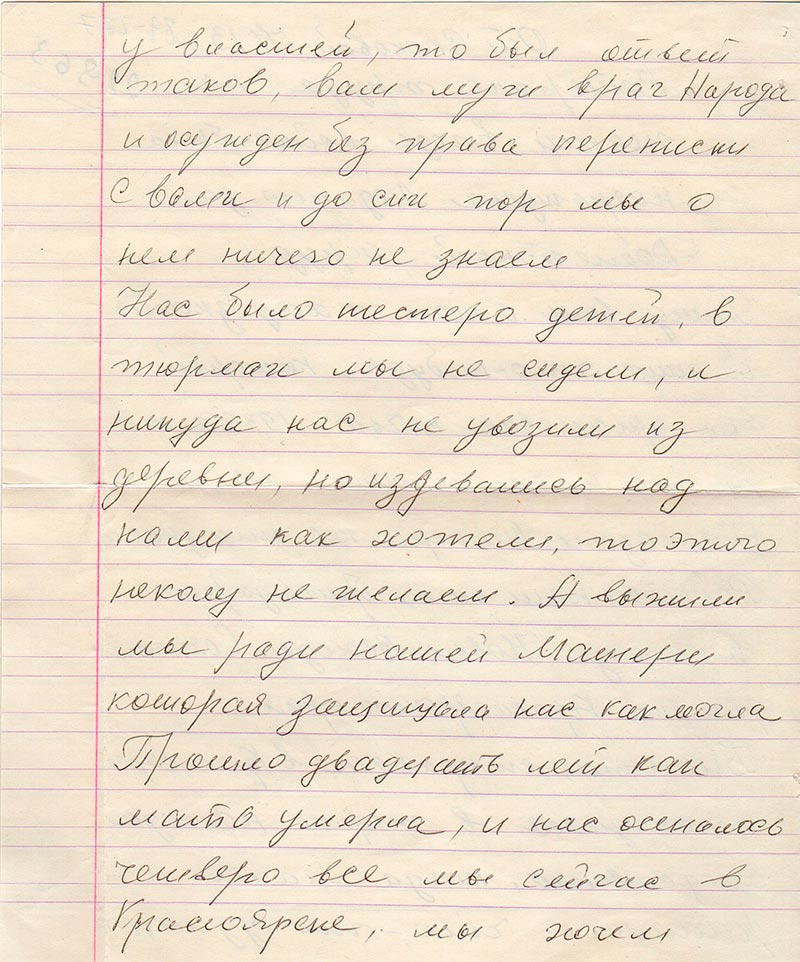 у властей, то был ответ
таков, вам муж враг Народа
и осужден без права переписки
с вами и до сих пор мы о
нем ничего не знаем
Нас было шестеро детей, в
тюрмах мы не сидели, и
никуда нас не увозили из
деревни, но издевались над
нами как хотели, то этого
некому не желаем. А выжили
мы ради нашей Матери
которая защищала нас как могла
Прошло двадцать лет как
мать умерла, и нас осталось
четверо все мы сейчас в
Красноярске, мы хочем